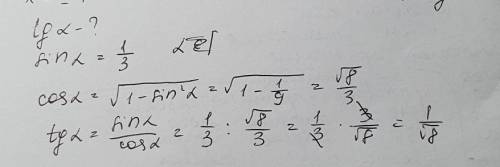 tgα - ?
sinα = 1/3
cosα = √(1 - sin²α) = √(1 - 1/9) = √8/3
tgα = sinα/cosα = 1/3 : √8/3 = 1/3 · 3/√8 = 1/√8